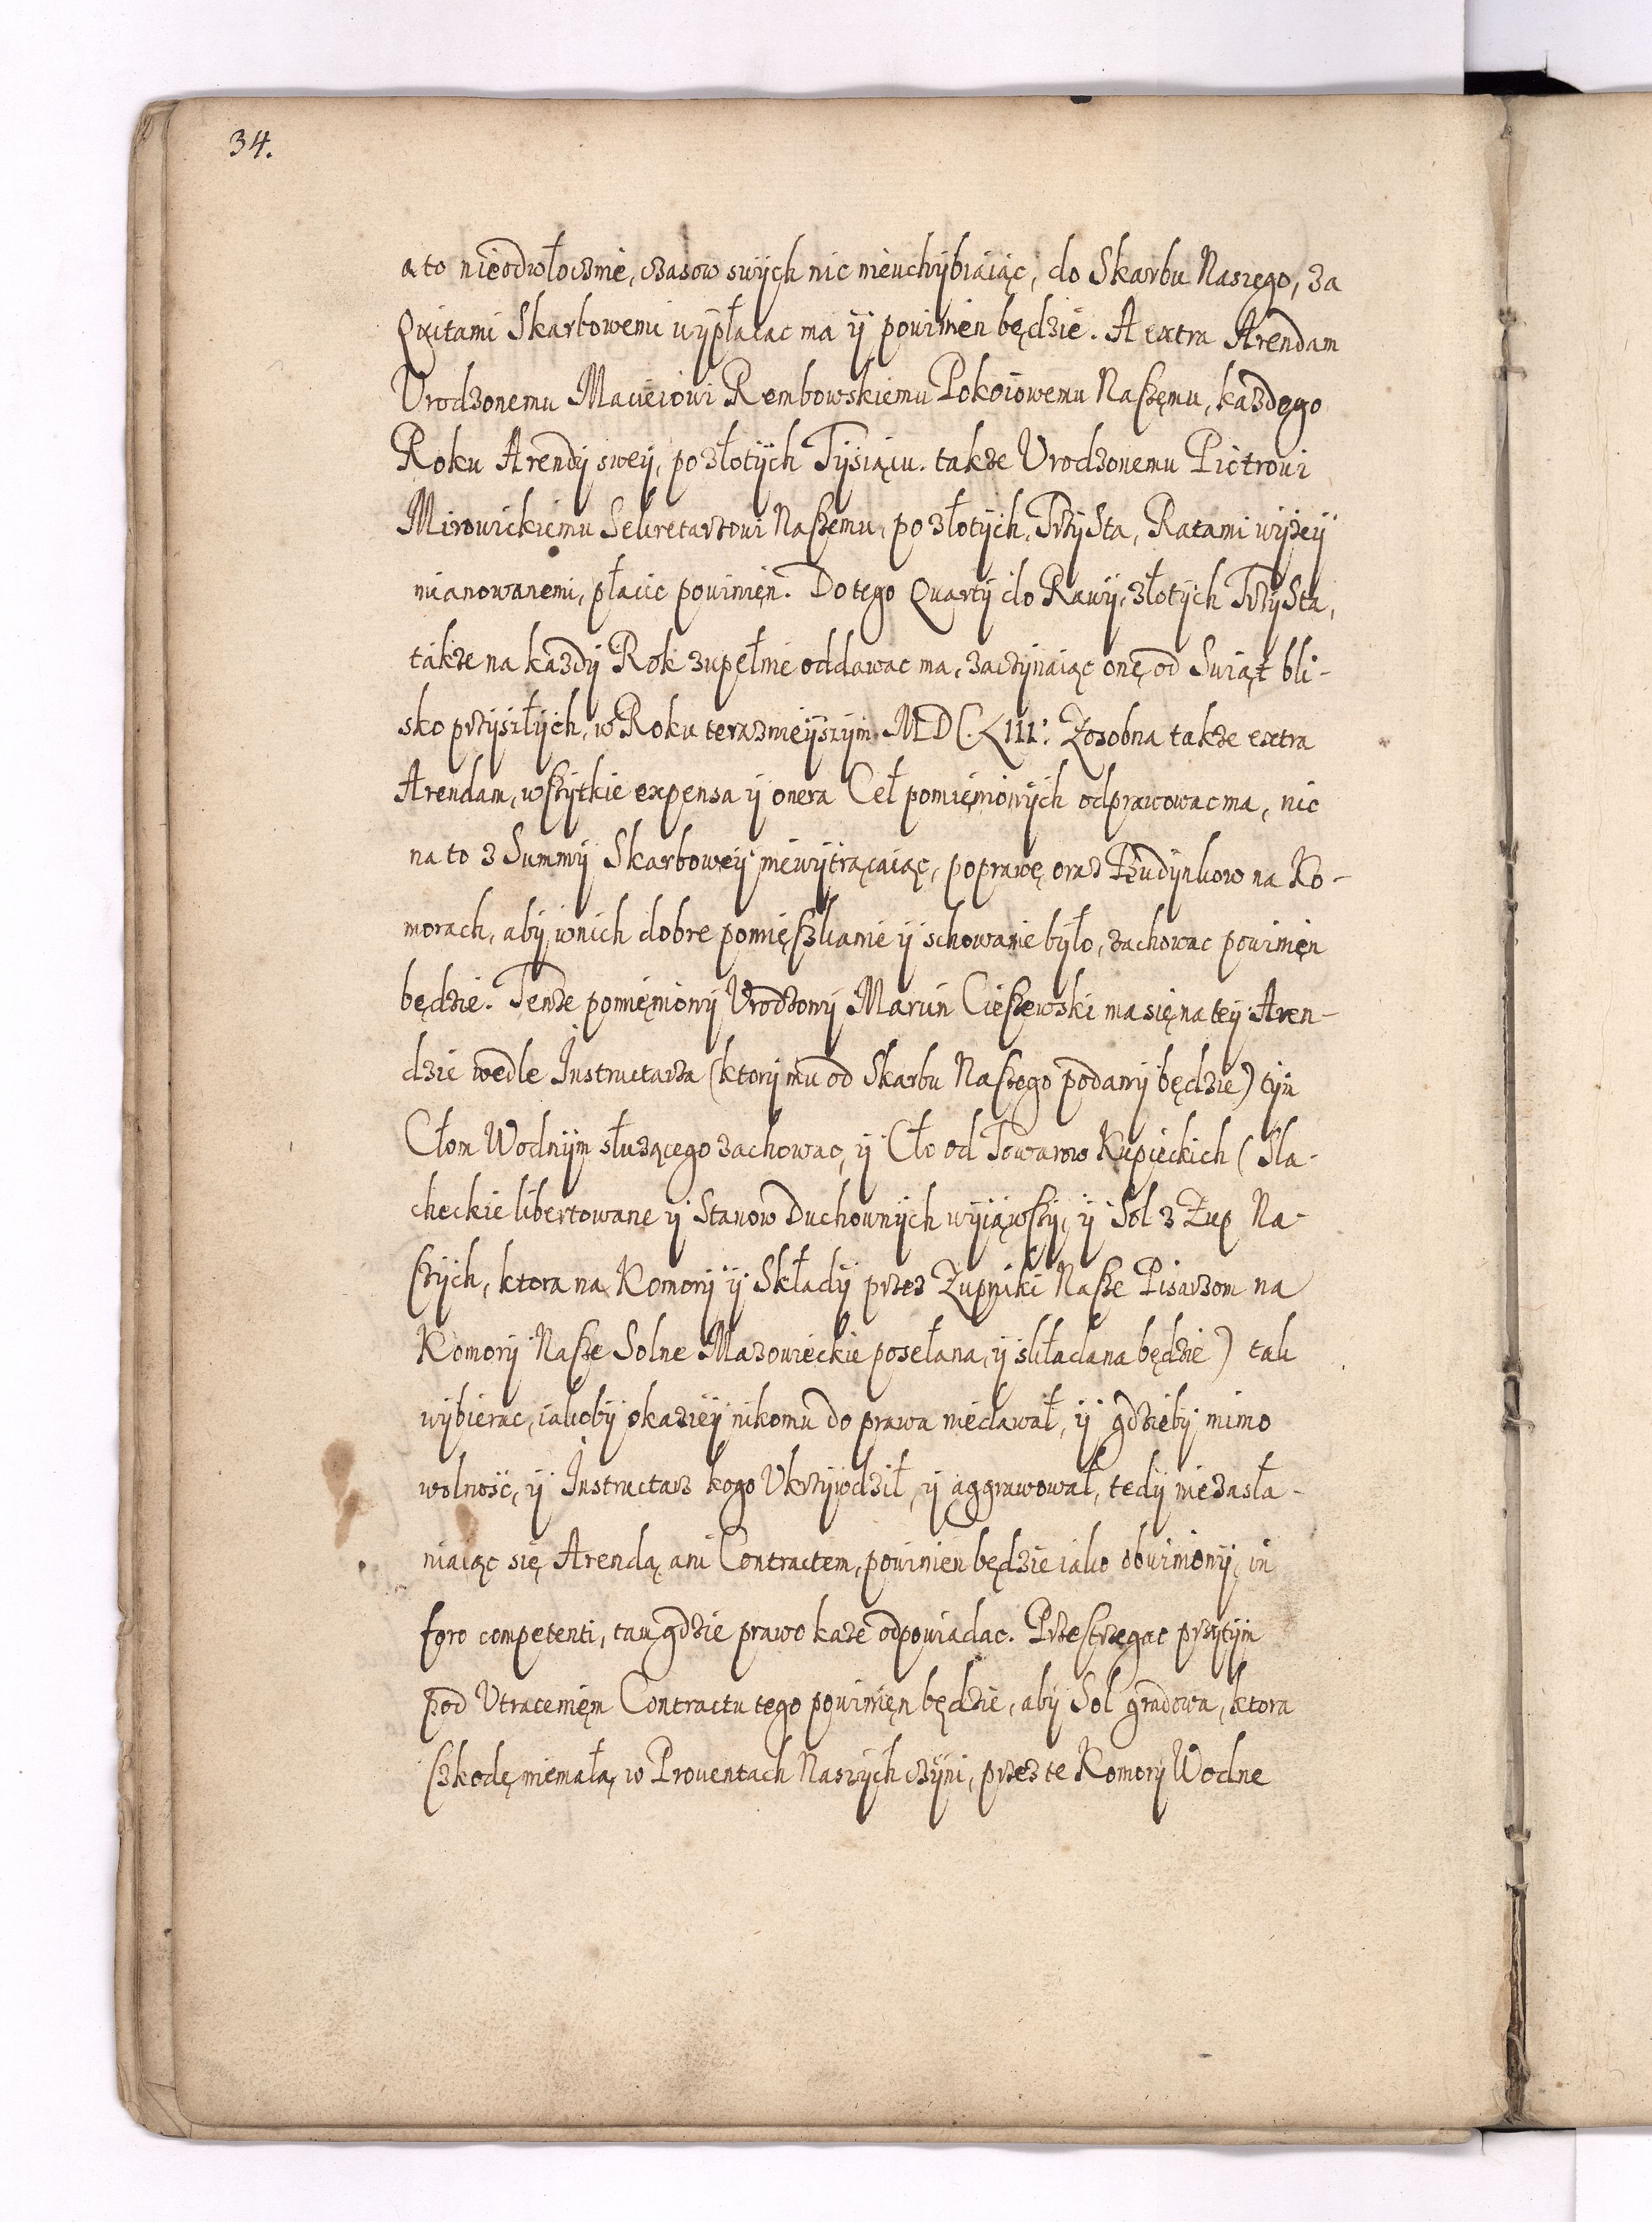 34.
a to nieodwłocznie, czasow swych nic nieuchybiaiąc, do Skarbu Naszego, za
Qvitami Skarbowemi wypłacac ma y powinien będzie. A extra Arendam
Vrodzonemu Macieiowi Rembowskiemu Pokoiowemu Naszemu, każdego
Roku Arendy swey, po złotych Tysiącu. także Vrodzonemu Piotrowi
Mirowickiemu Sekretarzowi Naszemu, po złotych, TrzySta, Ratami wyżey
mianowanemi, płacic powinien. Do tego Quarty do Rawy, złotych TrzySta,
także na każdy Rok zupełnie oddawac ma, zaczynaiąc onę od Swiąt bli-
sko przyszłych, w Roku teraznieyszym. MDC.LIII: Zosobna także extra
Arendam, wszytkie expensa y onera Ceł pomienionych odprawowac ma, nic
na to z Summy Skarbowey niewytrącaiąc, poprawę oraz Budynkow na Ko-
morach, aby w nich dobre pomieszkanie y schowanie było, zachowac powinien
będzie. Tenże pomieniony Vrodzony Marcin Cieszewski ma się na tey Aren-
dzie wedle Instructarza (ktory mu od Skarbu Naszego podany będzie) tym
Cłom Wodnym służącego zachowac, y Cło od Towarow Kupieckich (Sla-
checkie libertowane y Stanow Duchownych wyiąwszy, y Sol z Zup Na-
szych, ktora na Komory y Składy przez Zupniki Nasze Pisarzom na
Komory Nasze Solne Mazowieckie posełana, y składana będzie) tak
wybierac, iakoby okaziey nikomu do prawa niedawał, y gdzieby mimo
wolnosc, y Instructarz kogo Vkrzywdził, y aggrawował, tedy niezasła-
niaiąc się Arendą ani Contractem, powinien będzie iako obwiniony, in
foro competenti, tam gdzie prawo każe odpowiadac. Przestrzegac przytym
pod Vtraceniem Contractu tego powinien będzie, aby Sol gradowa, ktora
szkodę niemałą, w Proventach Naszych czyni, przez te Komory Wodne